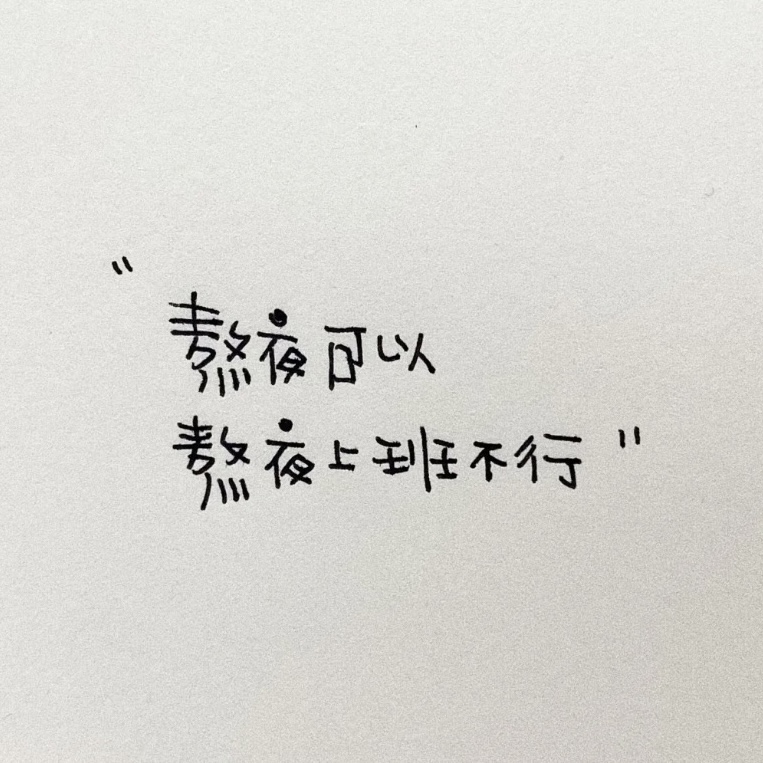 "熬夜可以
熬夜上班不行"